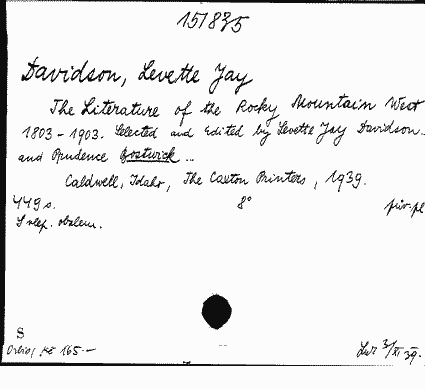 151835
Davidson, Levette Jay
The Literature of the Rocky Mountain West
1803-1903. Selected and Edited by Levette Jay Davidson
and Prudence Bostwick ...
Caldwell, Idaho, The Caxton Printers, 1939.
449 s. 8°
S
Kč 165.—
39.